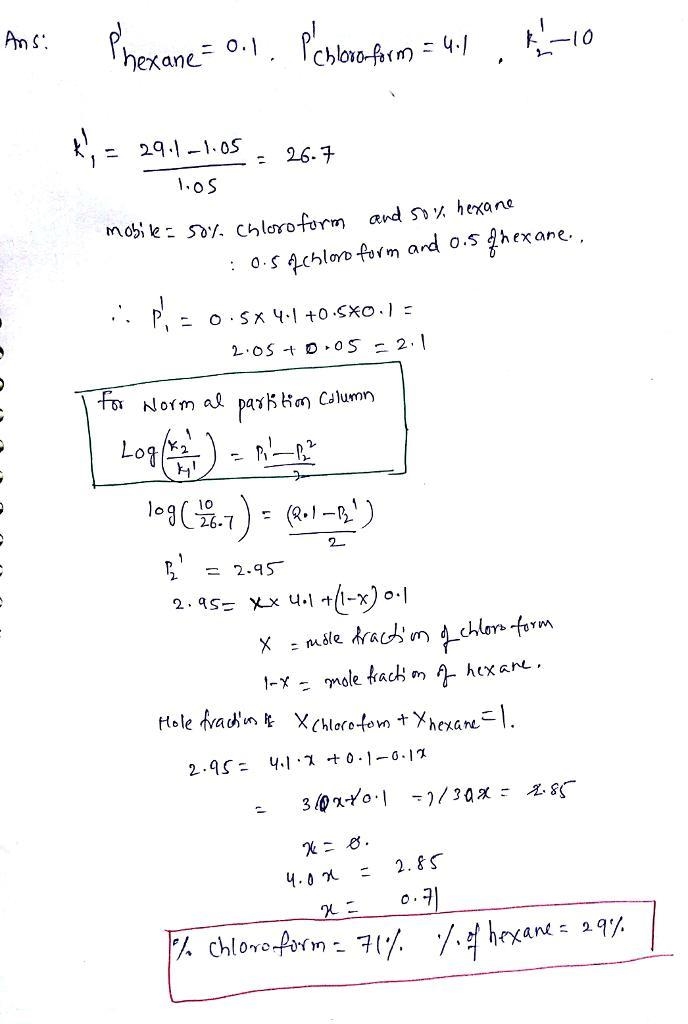 Ans: P'hexane = 0.1. P'chloroform = 4.1 , k'2 — 10
k'1 = 29.1 – 1.05 / 1.05 = 26.7
mobile = 50% chloroform and 50% hexane
: 0.5 of chloroform and 0.5 of hexane.,
∴ P'1 = 0.5 x 4.1 + 0.5x0.1 =
2.05 + 0.05 = 2.1
for Normal partition Column
Log (k2' / k1') = P1' – P2² / 2
log (10 / 26.7) = (2.1 – P2') / 2
P2' = 2.95
2.95 = x x 4.1 + (1-x) 0.1
x = mole fraction of chloroform
1-x = mole fraction of hexane.
Mole fraction Xchloroform + Xhexane = 1.
2.95 = 4.1·x + 0.1 – 0.1x
= x + 0.1 = 2.85
x = 0.
4.0x = 2.85
x = 0.71
% chloroform = 71% % of hexane = 29%